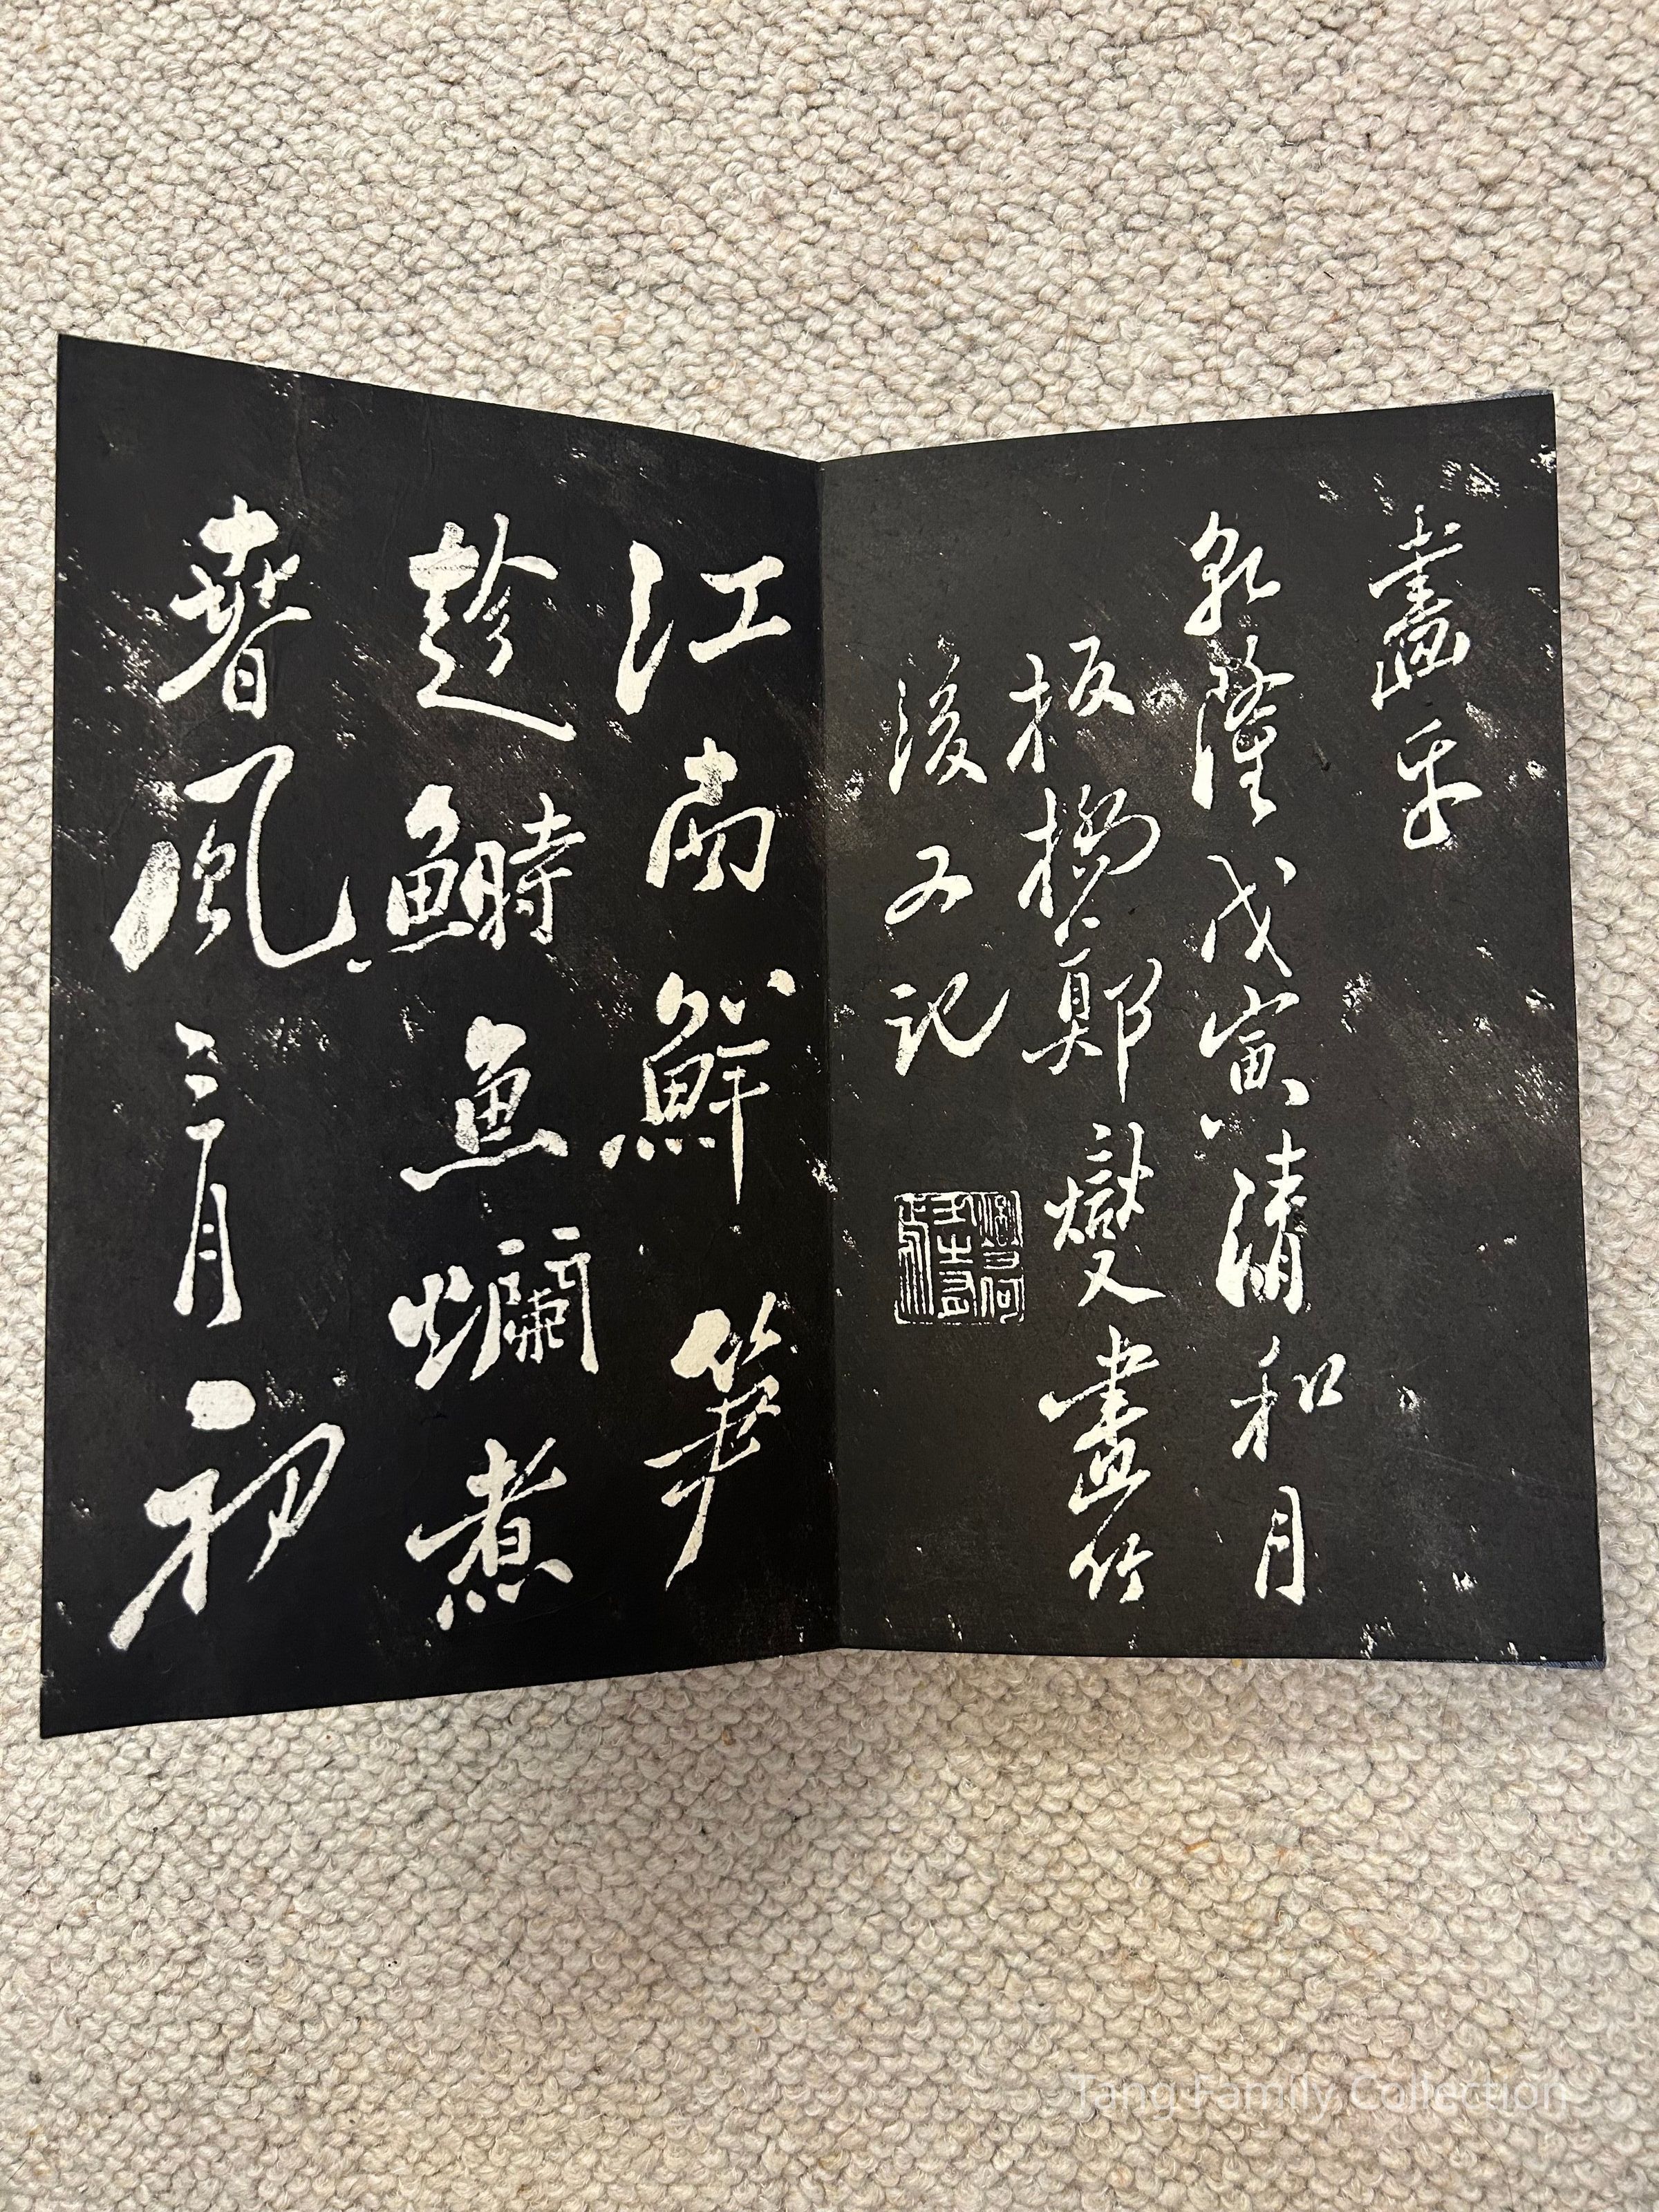 畫乎
乾隆戊寅清和月
板橋鄭燮畫竹
後又記
江南鮮筍
趁鰣魚爛煮
春風三月初
Tang Family Collection